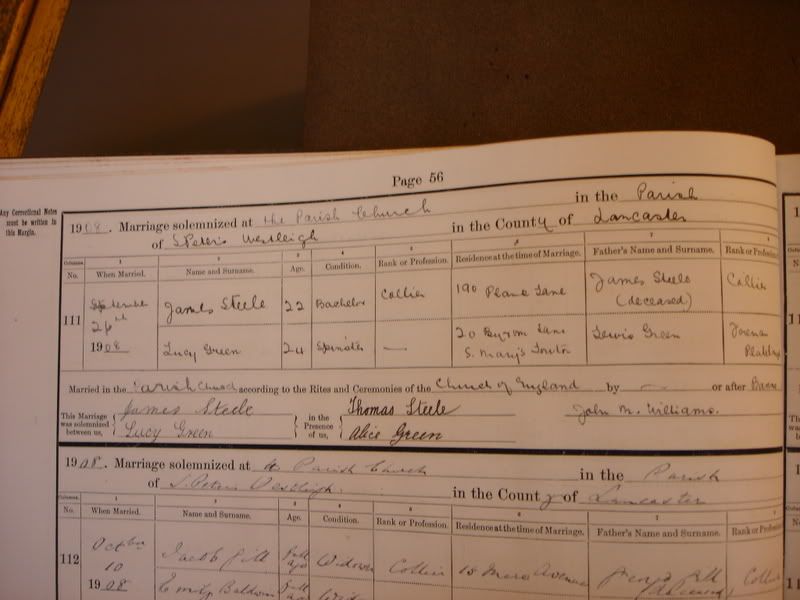 Page 56
Any Correctional Notes
must be written in
this Margin.
1908. Marriage solemnized at the Parish Church in the Parish
of S. Peter's Westleigh in the County of Lancaster
Columns. 1 2 3 4 5 6 7
No. When Married. Name and Surname. Age. Condition. Rank or Profession. Residence at the time of Marriage. Father's Name and Surname. Rank or Profession
111 September 26th 1908 James Steele 22 Bachelor Collier 190 Plane Lane James Steele (deceased) Collier
Lucy Green 24 Spinster — 20 Byrom Lane S. Mary's Lowton Lewis Green
Married in the Parish Church according to the Rites and Ceremonies of the Church of England by — or after Banns
This Marriage was solemnized between us, James Steele Lucy Green in the Presence of us, Thomas Steele Alice Green John M. Williams.
1908. Marriage solemnized at the Parish Church in the Parish
of S. Peters Westleigh. in the County of Lancaster
Columns. 1 2 3 4 5 6 7
No. When Married. Name and Surname. Age. Condition. Rank or Profession. Residence at the time of Marriage. Father's Name and Surname. Rank or
112 October 10 1908 Jacob Gill full age Widower Collier Avenue Gill
Emily Baldwin full